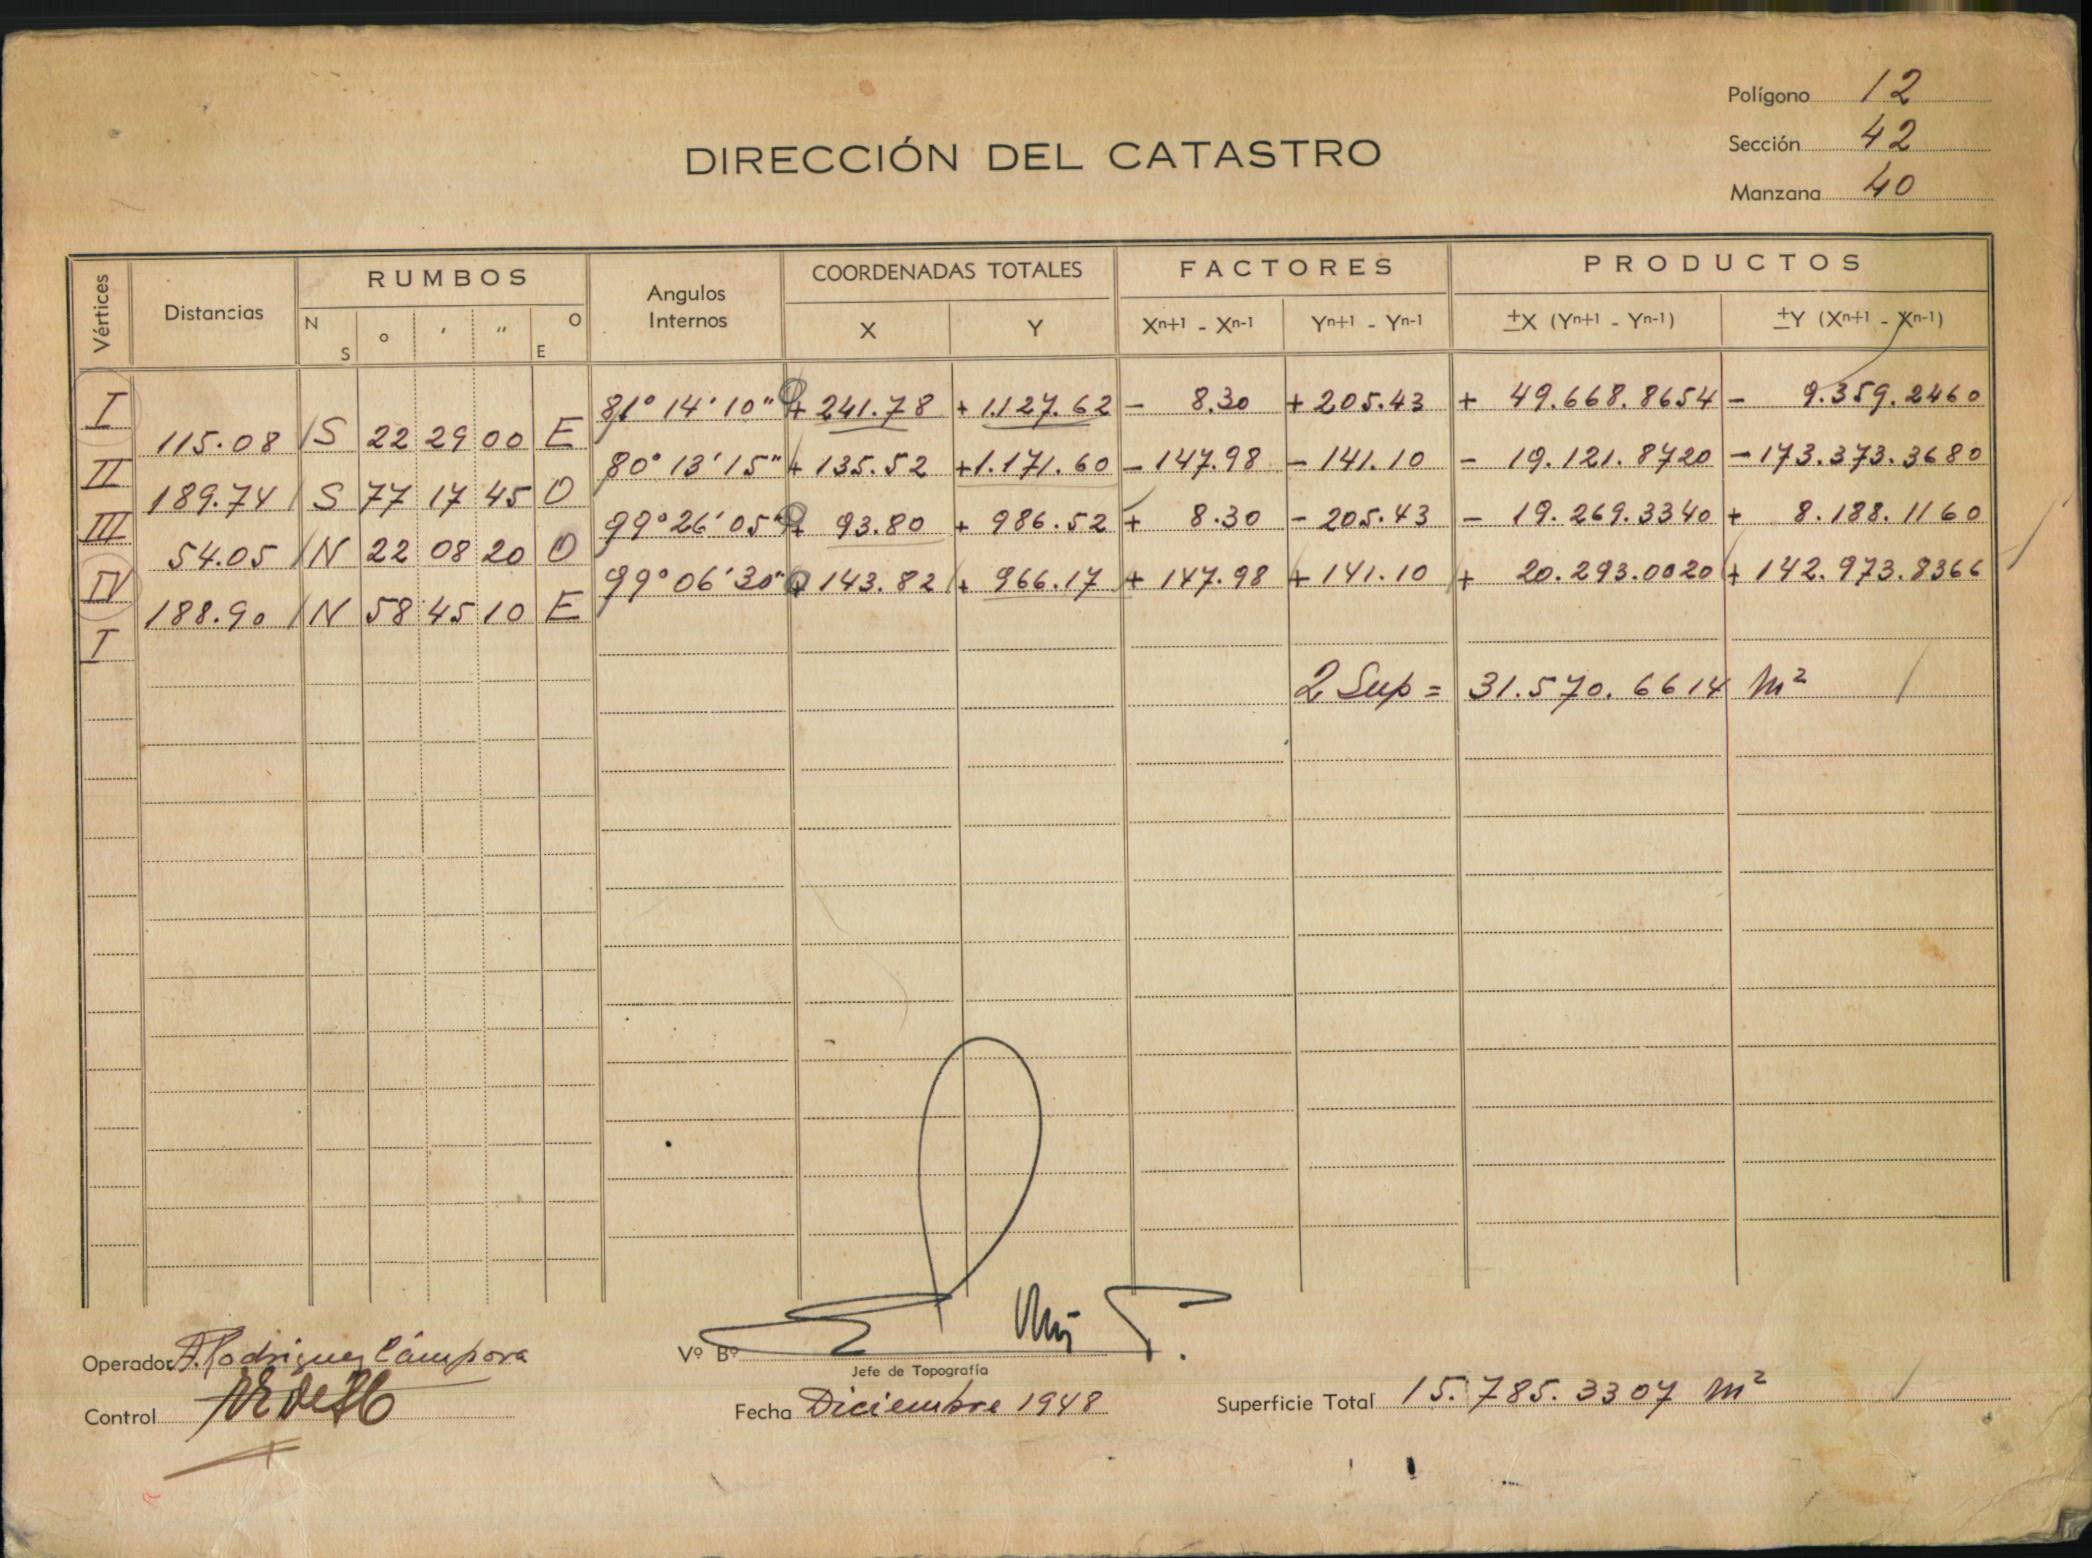 Polígono 12
Sección 42
Manzana 40
DIRECCIÓN DEL CATASTRO
Vértices Distancias RUMBOS Angulos Internos COORDENADAS TOTALES FACTORES PRODUCTOS
N S o ′ ″ O E X Y Xn+1 - Xn-1 Yn+1 - Yn-1 ±X (Yn+1 - Yn-1) ±Y (Xn+1 - Xn-1)
I 81° 14' 10" + 241.78 + 1.127.62 - 8.30 + 205.43 + 49.668.8654 - 9.359.2460
115.08 S 22 29 00 E
II 80° 13' 15" + 135.52 + 1.171.60 - 147.98 - 141.10 - 19.121.8720 - 173.373.3680
189.74 S 77 17 45 O
III 99° 26' 05" + 93.80 + 986.52 + 8.30 - 205.43 - 19.269.3340 + 8.188.1160
54.05 N 22 08 20 O
IV 99° 06' 30" + 143.82 + 966.17 + 147.98 + 141.10 + 20.293.0020 + 142.973.8366
188.90 N 58 45 10 E
I
2 Sup = 31.570.6614 m²
Operador A. Rodriguez Cámpora
Vº Bº
Jefe de Topografía
Control
Fecha Diciembre 1948
Superficie Total 15.785.3307 m²